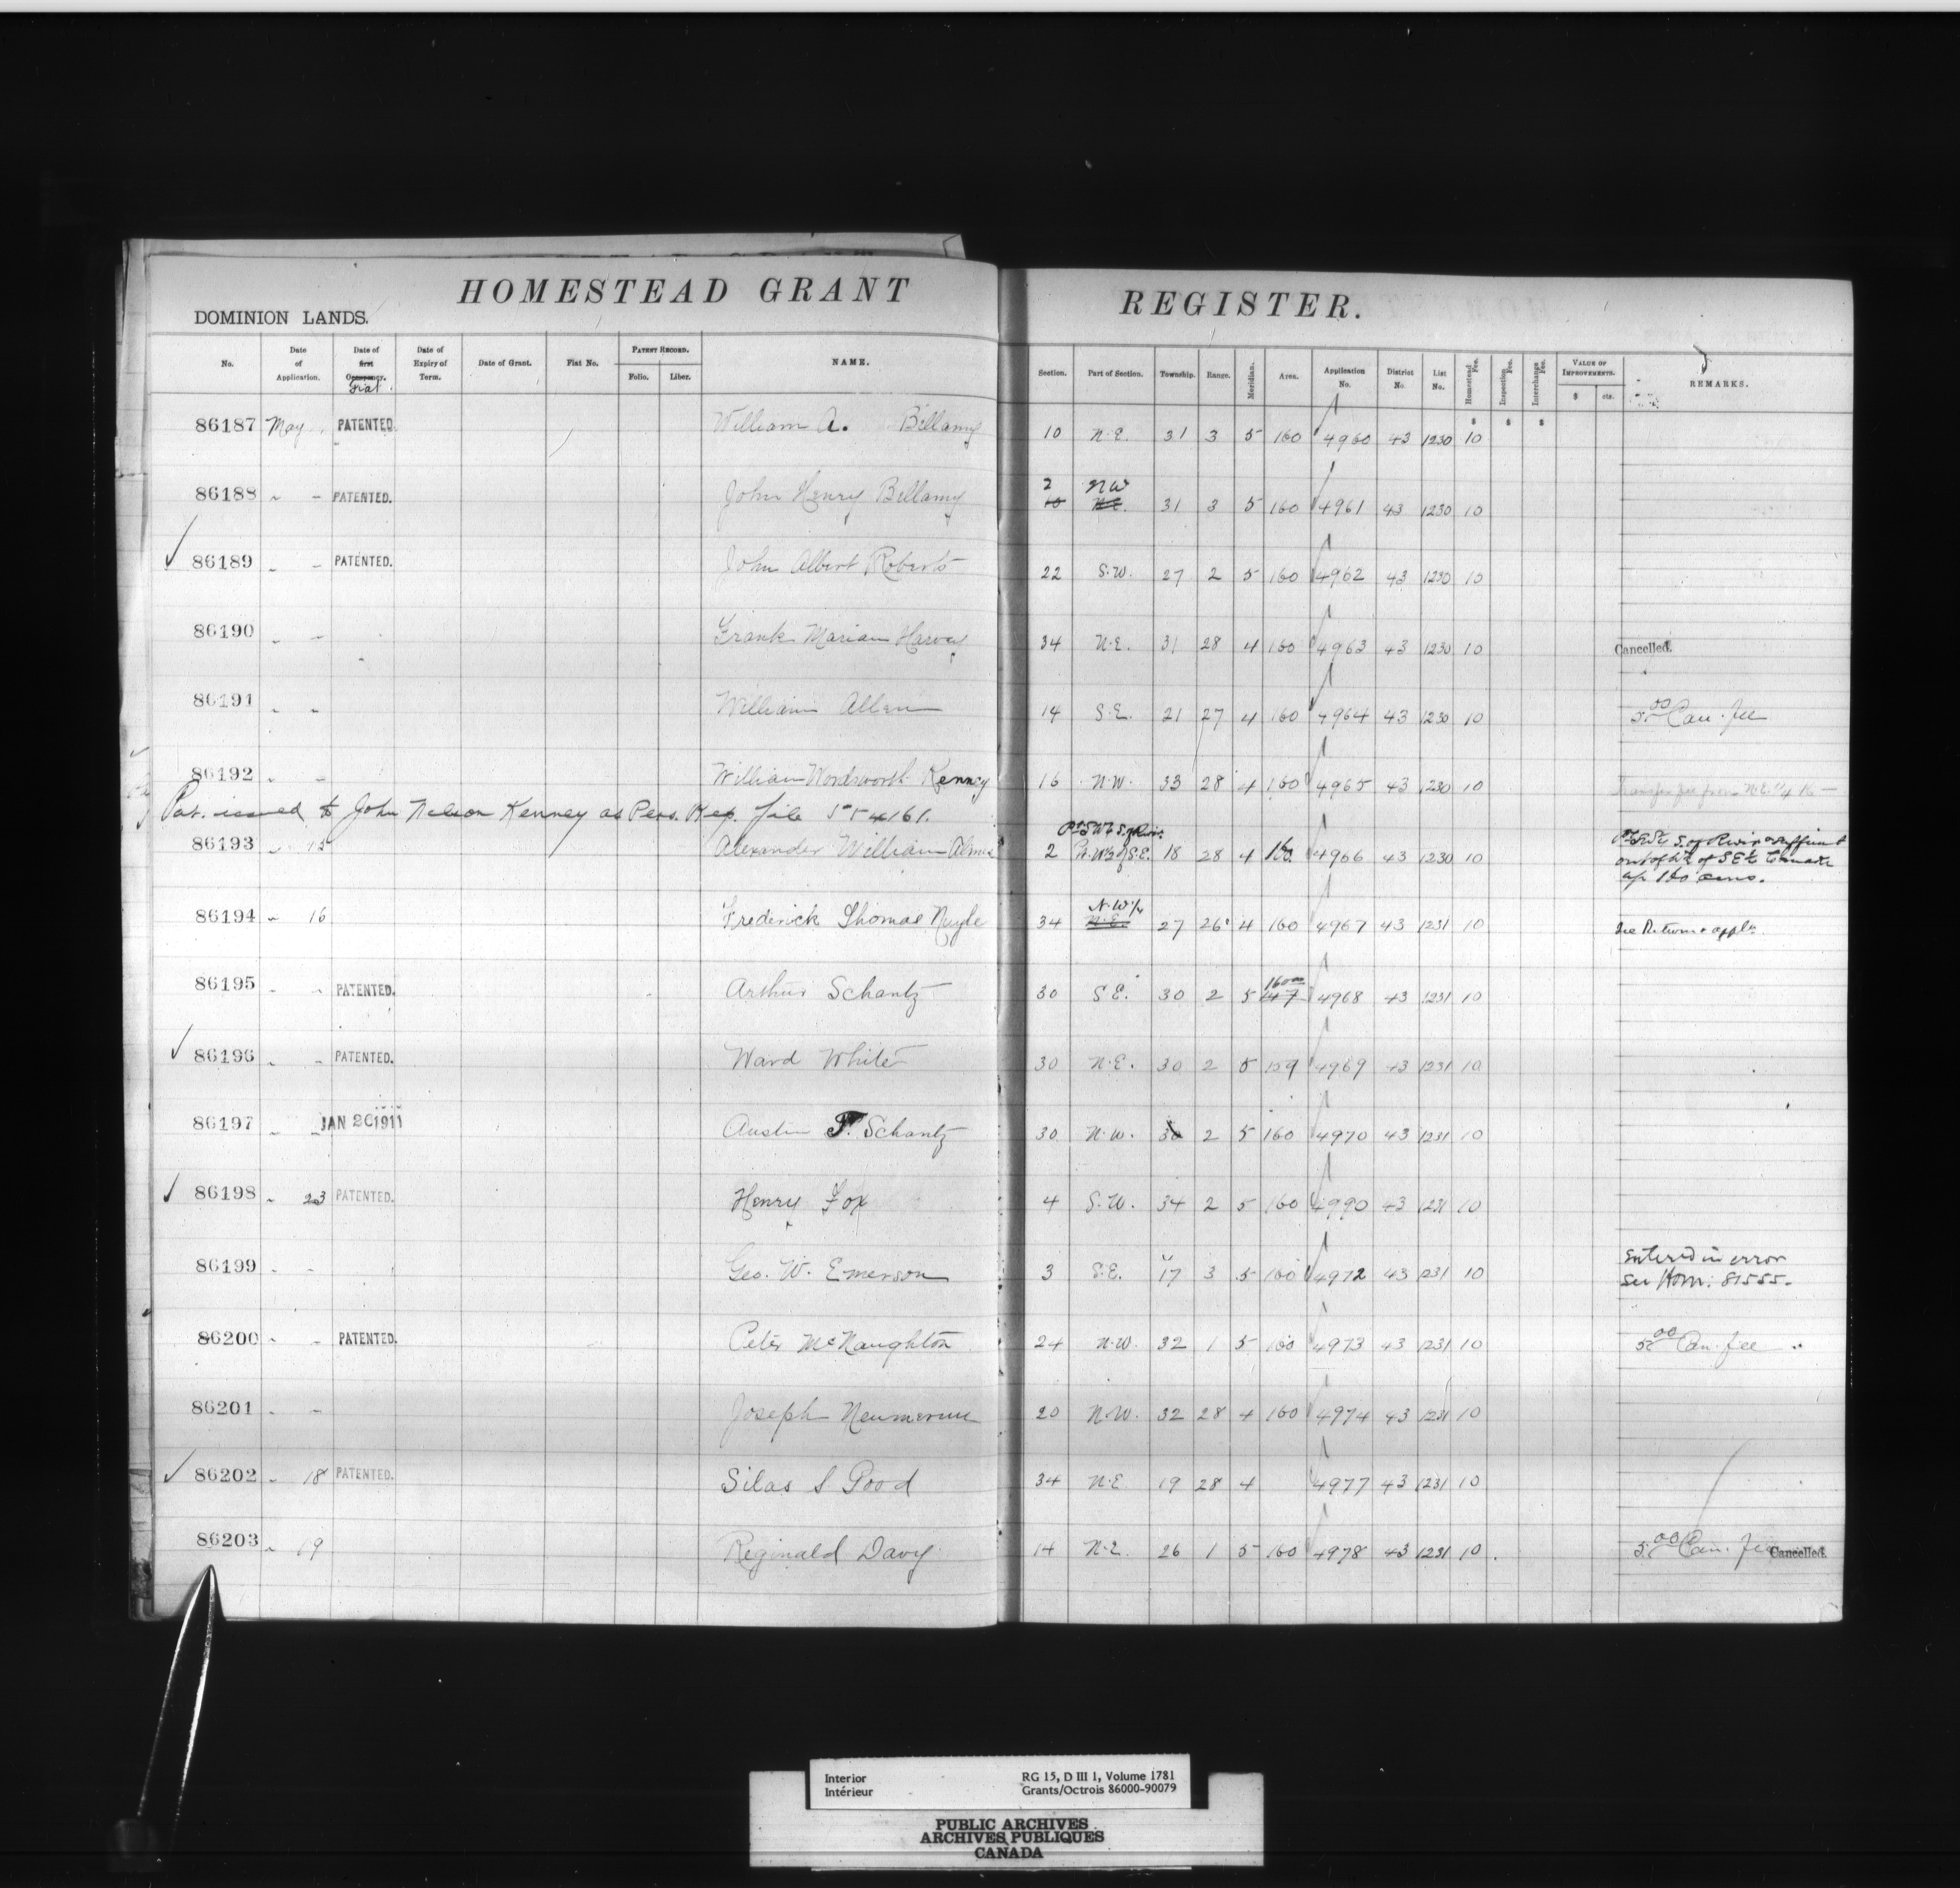 HOMESTEAD GRANT REGISTER.
DOMINION LANDS.
No. Date of Application. Date of first Occupancy. Fiat. Date of Expiry of Term. Date of Grant. Fiat No. PATENT RECORD. Folio. Liber. NAME. Section. Part of Section. Township. Range. Meridian. Area. Application No. District No. List No. Homestead Fee. Inspection Fee. Interchange Fee. VALUE OF IMPROVEMENTS. $ cts. REMARKS.
86187 May PATENTED. William A. Bellamy 10 N.E. 31 3 5 160 4960 43 1230 $ 10 $ $
2 NW
86188 " - PATENTED. John Henry Bellamy 10 N.E. 31 3 5 160 4961 43 1230 10
86189 " - PATENTED. John Albert Roberts 22 S.W. 27 2 5 160 4962 43 1230 10
86190 " - Frank Marian Harvey 34 N.E. 31 28 4 160 4963 43 1230 10 Cancelled.
86191 " - William Allen 14 S.E. 21 27 4 160 4964 43 1230 10 5.00 Can. fee
86192 " - William Wordsworth Kenney 16 N.W. 33 28 4 160 4965 43 1230 10 Transfer fee from N.E. 1/4 16 -
Pat. issued to John Nelson Kenney as Pers. Rep. file 554161.
Pt. SW 1/4 S. of River.
86193 " 15 Alexander William 2 Pt. W 1/2 of S.E. 18 28 4 160. 4966 43 1230 10 Pt SW 1/4 S. of River & sufficient
out of W 1/2 of SE 1/4 to make
up 160 acres.
N.W 1/4
86194 " 16 Frederick Thomas 34 N.E. 27 26 4 160 4967 43 1231 10 See Return & appln.
160
86195 " - PATENTED. Arthur Schantz 30 S.E. 30 2 5 147 4968 43 1231 10
86196 " - PATENTED. Ward White 30 N.E. 30 2 5 159 4969 43 1231 10
86197 " - JAN 26 1911 Austin F. Schantz 30 N.W. 30 2 5 160 4970 43 1231 10
86198 " 23 PATENTED. Henry Fox 4 S.W. 34 2 5 160 4990 43 1231 10
86199 " - Geo. W. Emerson 3 S.E. 17 3 5 160 4972 43 1231 10 Entered in error
See Hom: 81555.
86200 " - PATENTED. Peter McNaughton 24 N.W. 32 1 5 160 4973 43 1231 10 5.00 Can. fee
86201 " - Joseph 20 N.W. 32 28 4 160 4974 43 1231 10
86202 " 18 PATENTED. Silas S Good 34 N.E 19 28 4 4977 43 1231 10
86203 " 19 Reginald Davy 14 N.E. 26 1 5 160 4978 43 1231 10 5.00 Can. fee Cancelled.
Interior
Intérieur
RG 15, D III 1, Volume 1781
Grants/Octrois 86000-90079
PUBLIC ARCHIVES
ARCHIVES PUBLIQUES
CANADA